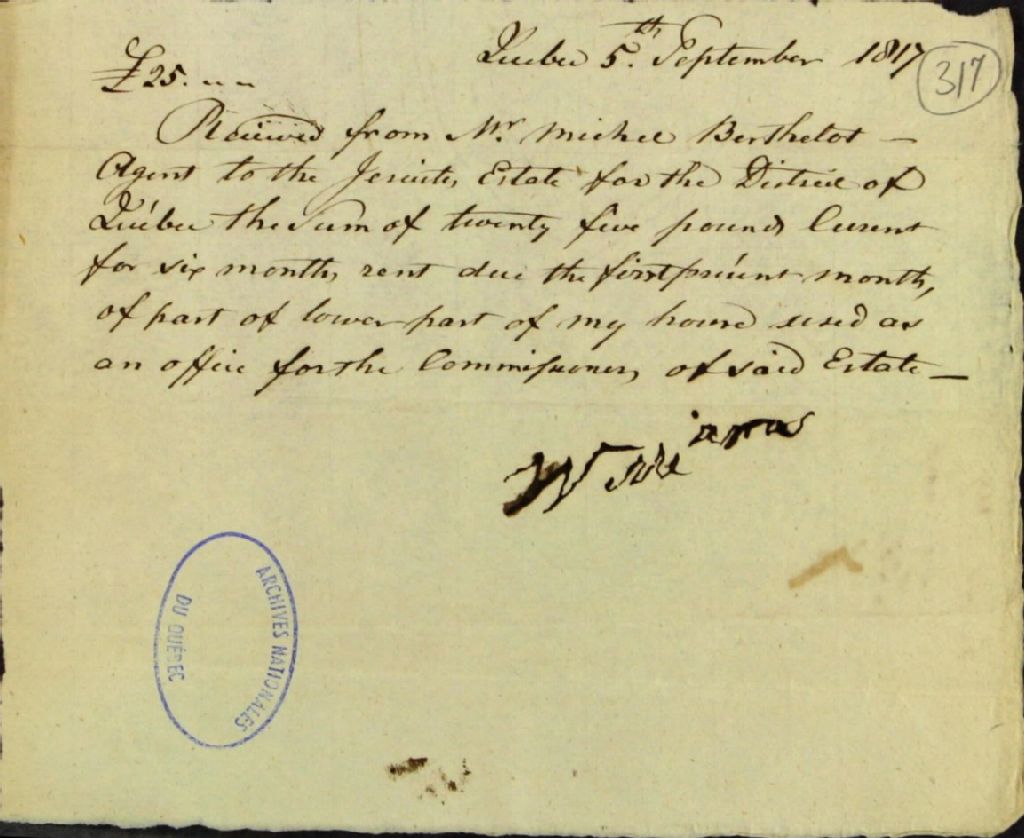 Quebec 5th September 1817
317
£25. " "
Received from Mr. Michel Berthelot —
Agent to the Jesuits, Estate for the District of
Québec the sum of twenty five pounds Curent
for six months rent due the first present month,
of part of lower part of my house used as
an office for the Commissioners, of said Estate —
ARCHIVES NATIONALES
DU QUÉBEC